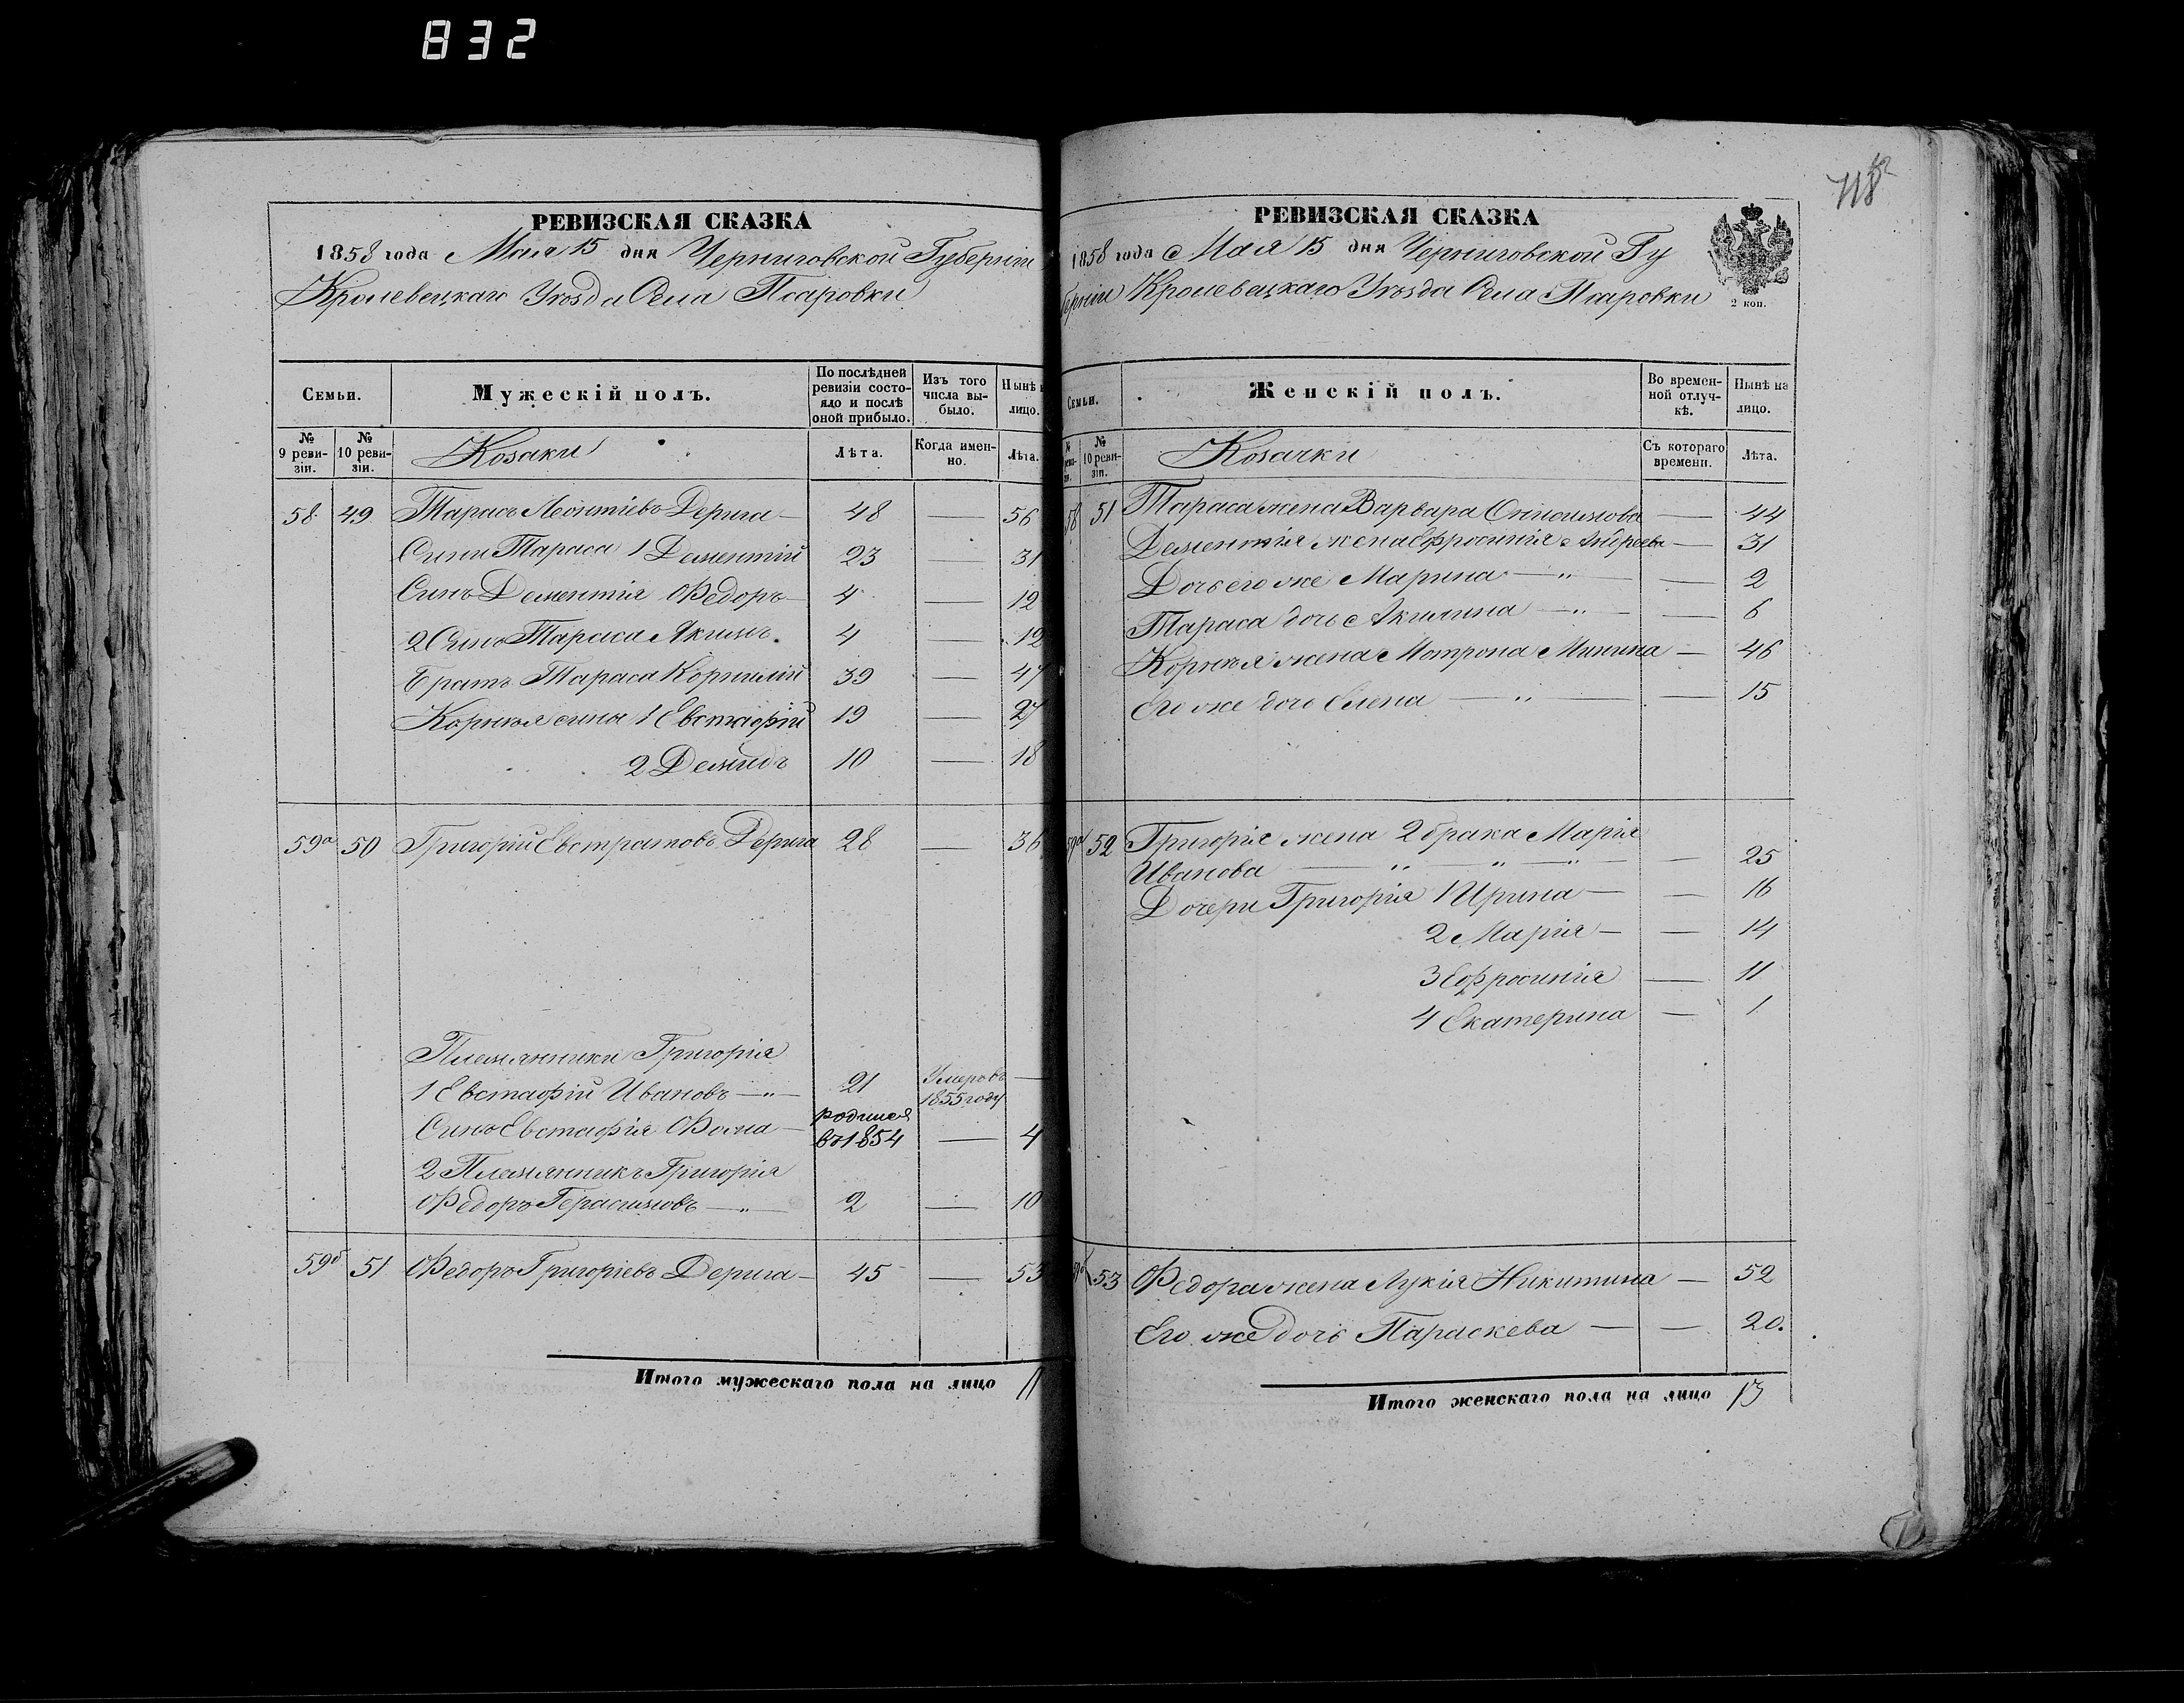 832
718
РЕВИЗСКАЯ СКАЗКА
1858 года Мая 15 дня Черниговской Губерніи
Кролевецкаго Уѣзда Села Псаровки
Семьи.
Мужескій полъ.
По послѣдней ревизіи состояло и послѣ оной прибыло.
Изъ того числа выбыло.
Нынѣ на лицо.
№ 9 ревизіи.
№ 10 ревизіи.
Козаки
Лѣта.
Когда именно.
Лѣта.
58 49 Тарасъ Леонтіевъ Дерига — 48 — 56
Сыни Тараса 1 Дементій 23 — 31
Синъ Дементія Федоръ — 4 — 12
2 Синъ Тараса Якимъ. 4 — 12
Братъ Тараса Корнилій 39 — 47
Корнѣя сины 1 Евстафій 19 — 27
2 Демидъ 10 — 18
59а 50 Григорій Евстратовъ Дерига 28 — 36
Племянники Григорія
1 Евстафій Ивановъ —"— 21 Умеръ въ 1855 году —
Синъ Евстафія Фома — родился въ 1854 — 4
2 Племянникъ Григорія
Федоръ Герасимовъ —"— 2 — 10
59б 51 Федоръ Григоріевъ Дерига — 45 — 53
Итого мужескаго пола на лицо 11
РЕВИЗСКАЯ СКАЗКА
1858 года Мая 15 дня Черниговской Гу
берніи Кролевецкаго Уѣзда Села Псаровки
2 коп.
Семьи.
Женскій полъ.
Во временной отлучкѣ.
Нынѣ на лицо.
№ 10 ревизіи.
Козачки
Съ котораго времени.
Лѣта.
58 51 Тараса жена Варвара — 44
Дементія жена Ефросинія Андреева — 31
Дочь его же Марина —"— — 2
Тараса дочь Акилина —"— — 6
Корнѣя жена Мотрона Минина — 46
Его же дочь Елена —"— — 15
59а 52 Григорія жена 2 брака Марія
Иванова —"—"—"— — 25
Дочери Григорія 1 Ирина — — 16
2 Марія — — 14
3 Ефросинія — 11
4 Екатерина — 1
59б 53 Федора жена Лукія Никитина — 52
Его же дочь Параскева — — 20.
Итого женскаго пола на лицо 13